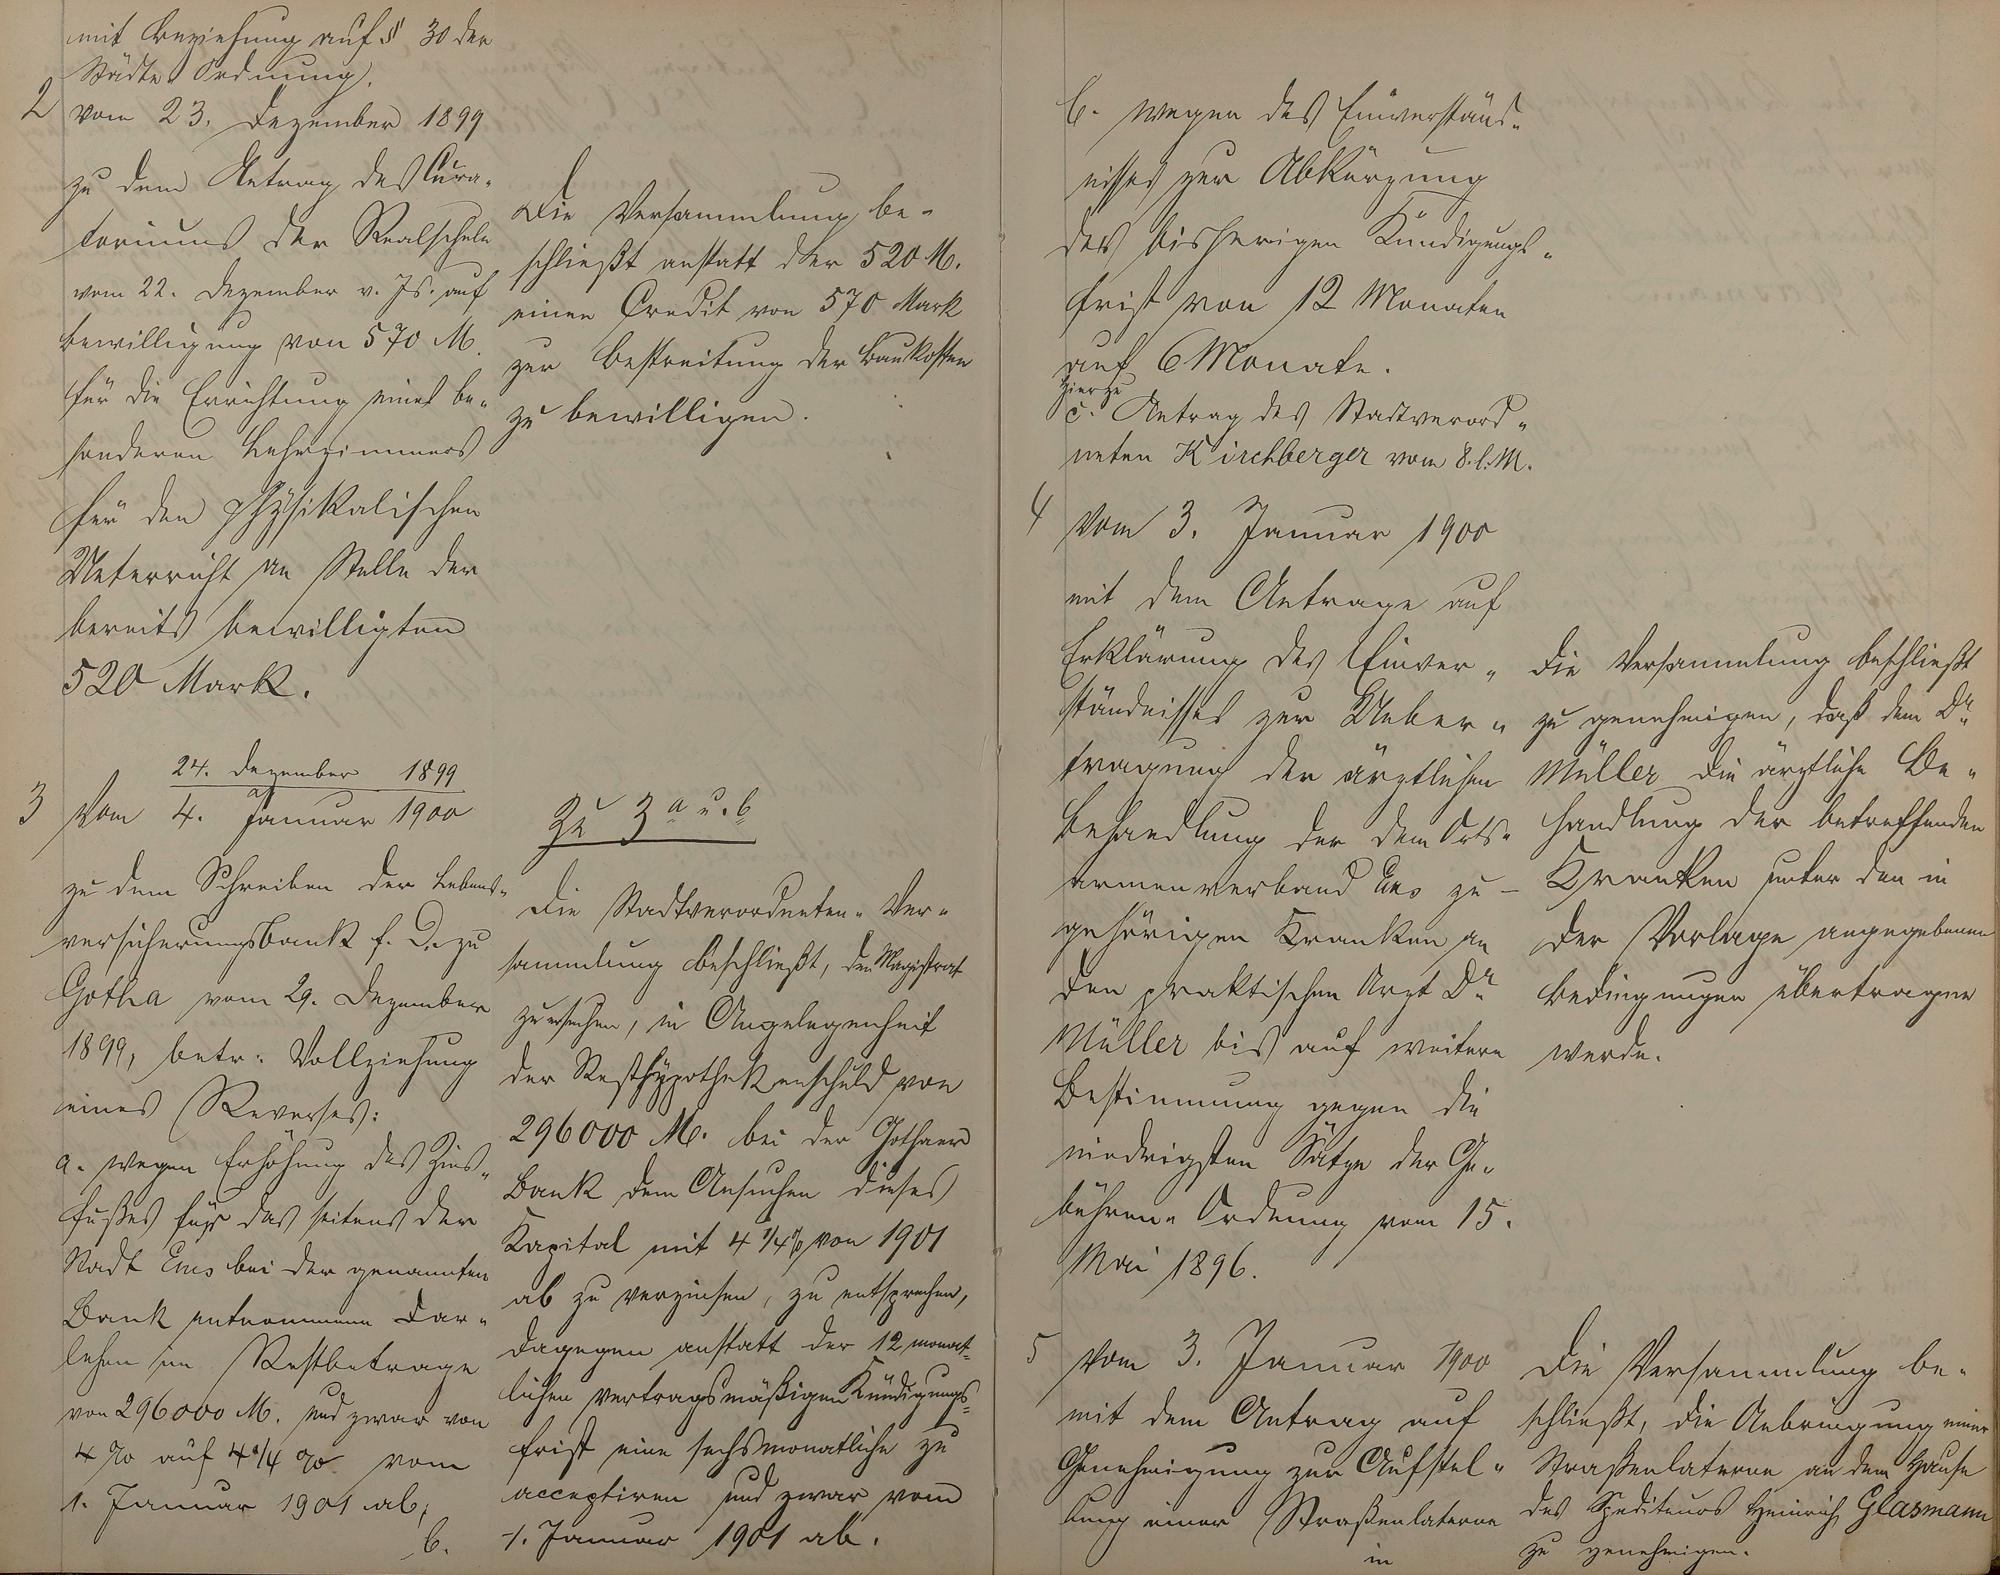 mit Beziehung auf § 30 der
Städte Ordnung.
2 vom 23. Dezember 1899
zu dem Antrag des Cura-
toriums der Realschule
vom 22. Dezember v. Js. auf
Bewilligung von 570 M.
für die Errichtung eines be-
sonderen Lehrzimmers
für den physikalischen
Unterricht an Stelle der
bereits bewilligten
520 Mark.
Die Versammlung be-
schließt anstatt der 520 M.
einen Credit von 570 Mark
zur Bestreitung der Baukosten
zu bewilligen.
24. Dezember 1899
3 vom 4. Januar 1900
zu dem Schreiben der Lebens-
versicherungsbank f. D. zu
Gotha vom 29. Dezember
1899, betr. Vollziehung
eines Reverses:
a. wegen Erhöhung des Zins-
fußes für das seitens der
Stadt Ems bei der genannten
Bank entnommene Dar-
lehen im Restbetrage
von 296000 M. und zwar von
4 % auf 4 1/4 % vom
1. Januar 1901 ab,
b.
Zu 3 a u. b
Die Stadtverordneten-Ver-
sammlung beschließt, den Magistrat
zu ersuchen, in Angelegenheit
der Resthypothekenschuld von
296000 M. bei der Gothaer
Bank dem Ansuchen dieses
Kapital mit 4 1/4 % von 1901
ab zu verzinsen, zu entsprechen,
dagegen anstatt der 12 monat-
lichen vertragsmäßigen Kündigungs-
frist eine sechsmonatliche zu
acceptiren und zwar vom
1. Januar 1901 ab.
b. wegen des Einverständ-
nisses zur Abkürzung
der bisherigen Kündigungs-
frist von 12 Monaten
auf 6 Monate.
Hierzu
c. Antrag des Stadtverord-
neten Kirchberger vom 8. l. M.
4 vom 3. Januar 1900
mit dem Antrage auf
Erklärung des Einver-
ständnisses zur Ueber-
tragung der ärztlichen
Behandlung der dem Orts-
armenverband Ems zu-
gehörigen Kranken an
den praktischen Arzt Dr.
Müller bis auf weitere
Bestimmung gegen die
niedrigsten Sätze der Ge-
bühren-Ordnung vom 15.
Mai 1896.
Die Versammlung beschließt
zu genehmigen, daß dem Dr.
Müller die ärztliche Be-
handlung der betreffenden
Kranken unter den in
der Vorlage angegebenen
Bedingungen übertragen
werde.
5 vom 3. Januar 1900
mit dem Antrag auf
Genehmigung zur Aufstel-
lung einer Straßenlaterne
in
Die Versammlung be-
schließt, die Anbringung einer
Straßenlaterne an dem Hause
des Spediteurs Heinrich Glasmann
zu genehmigen.